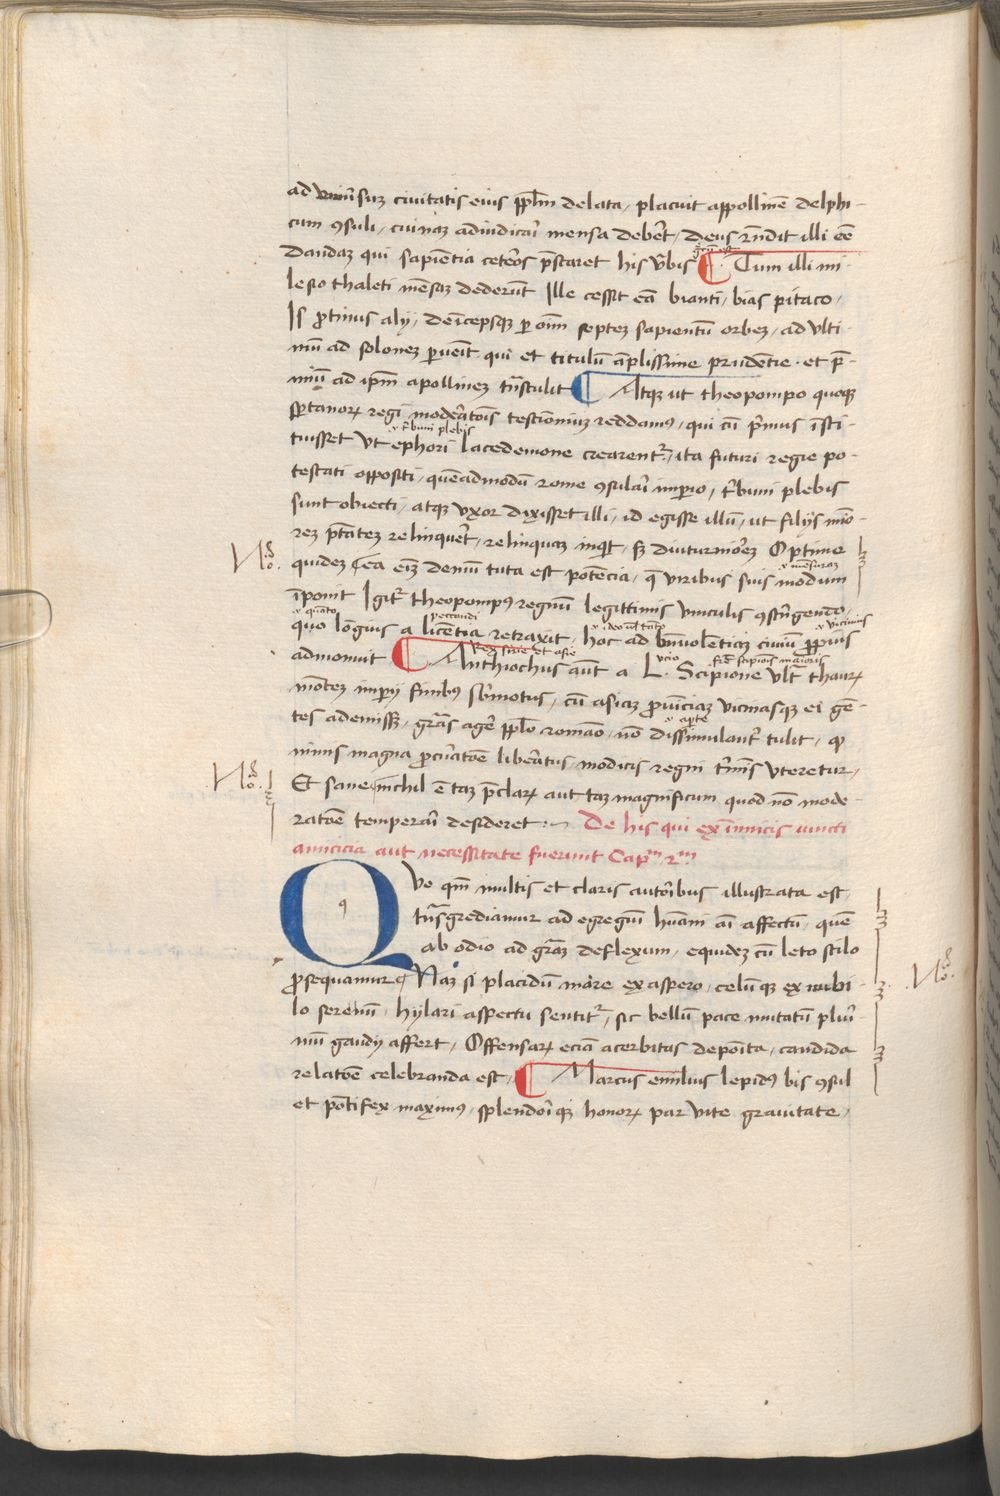 ad vniuˀsuꝫ ciuitatis eius ppl̄m delata / placuit appollinē delphi-
cum ꝯsuli / cuinaꝫ adiudicaˀi mensa debeˀt / Deus rn̄dit illi eē
dandaꝫ qui sapiencia ceteˀos p̄staret his vˀbis ¶ Tum illi mi-
lesio thaleti mēsaꝫ dederūt Ille cessit eā bianti / bias pitaco /
Is ꝓtinus alij / deīcepsqꝫ ꝑ oīm septeꝫ sapientū orbeꝫ / ad vlti-
mū ad soloneꝫ ꝑuēit qui et titulū āplissime prudētie · et p̄-
miū ad ip̄m apollineꝫ tn̄stulit ¶ Atqꝫ ut theopompo quoqꝫ
sꝑtanoꝝ regi modeˀatōis testioniuꝫ reddamꝰ / qui cū pˀmus īsti-
v tˀbuni plebis
tuisset vt ephori lacedemone crearentˀ / ita futuri regie po-
testati oppositi / quēadmodū rome ꝯsulaˀi impˀio / tˀbuni plebis
sunt obiecti / atqꝫ vxor dixisset illi / id egisse illū / ut filijs mīo-
reꝫ ptāteꝫ relinqueˀt / relinquaꝫ inqͥt / sꝫ diuturnioˀeꝫ Optime
v mēsuraꝫ
quideꝫ Ea eīꝫ demū tuta est potēcia / q̄ viribus suis modum
īponit Igitˀ theopompꝰ regnū legittimis vinculis ꝯstˀngendo /
v quāto peccandi v vicinius
quo lōgius a licētia retraxit / hoc ad bn̄uolētiaꝫ ciuiū ꝓpius
Rex sirie et asie vcio
admouit ¶ Anthiochus aūt a L · Scipione vltˀ thauꝝ
mōteꝫ impˀij finibꝰ sbˀmotus / cū asiaꝫ ꝓuīciaꝫ vicinasqꝫ ei gē-
v aꝑte
tes ademissꝫ / grās ageˀ ppl̄o romāo / nō dissimulantˀ tulit / qꝙ
nimis magna ꝓcuˀatōe libeˀatus / modicis regni tˀmīs vteretur /
Et sane nichil ē taꝫ p̄claꝝ aut taꝫ magnificum quod nō mode-
ratōe temperaˀi desideret :~ De his qui ex īimicis iuncti
amicicia aut necessitate fuerunt Capᵐ 2ᵐ
Qve qm̄ multis et claris autoˀibus illustrata est
tn̄sgrediamur ad egregiū hūani aī affectū / quē
ab odio ad grāꝫ deflexum / equideꝫ cū leto stilo
ꝓsequamur ¶ Naꝫ si placidū mare ex aspero / celūqꝫ ex nubi-
lo serenū / hylari aspectu sentitˀ / sic bellū pace mutatū pluˀi-
mū gaudij affert / Offensaꝝ eciā acerbitas depōita / candida
relatōe celebranda est / ¶ Marcus emilius lepidꝰ bis ꝯsul
et pōtifex maximꝰ / splendoˀiqꝫ honoꝝ par vite grauitate /